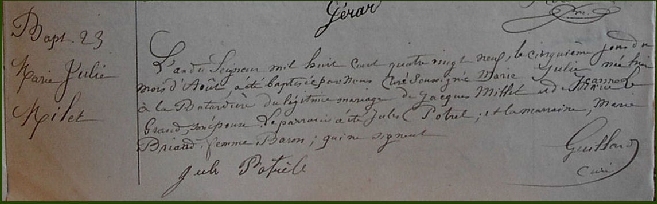 Gérar
Bapt. 23
Marie Julie
Milet
L'an du Seigneur mil huit cent quatre vingt neuf, le cinquième jour du
mois d'Août, a été baptisée par Nous Curé soussigné Marie Julie née hier
à la Potardière du légitime mariage de Jacques Millet et de Marie
Briand, son épouse. Le parrain a été Jules Potrel; et la marraine, Marie
Briand femme Baron; qui ne signent
Juli Potrèle
Guillard
Curé